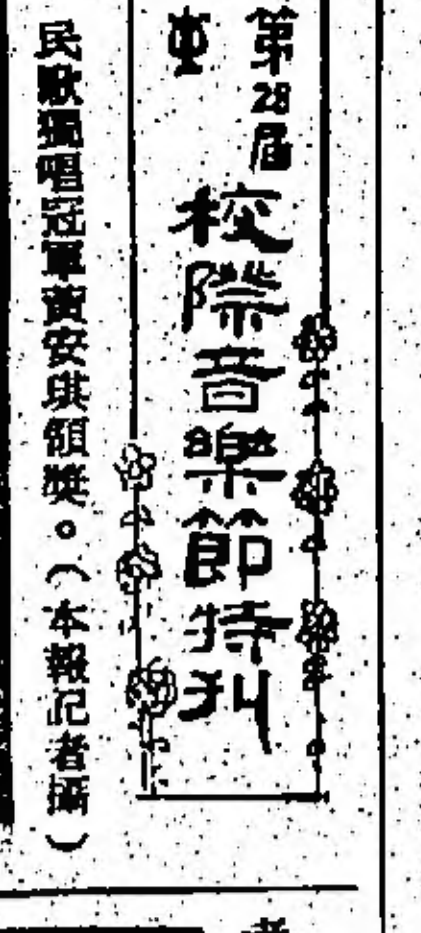 第28屆
校際音樂節特刊
民歌獨唱冠軍黃安琪領獎。(本報記者攝)